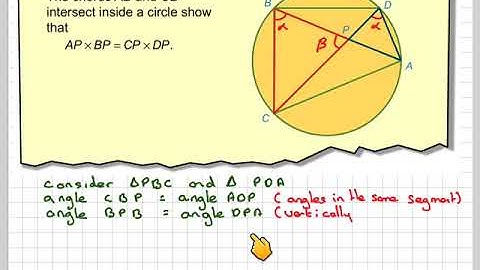 intersect inside a circle show
that
AP × BP = CP × DP.
B
D
α
α
P
β
A
C
consider ΔPBC and Δ PDA
angle CBP = angle ADP (angles in the same segment)
angle BPB = angle DPA (vertically